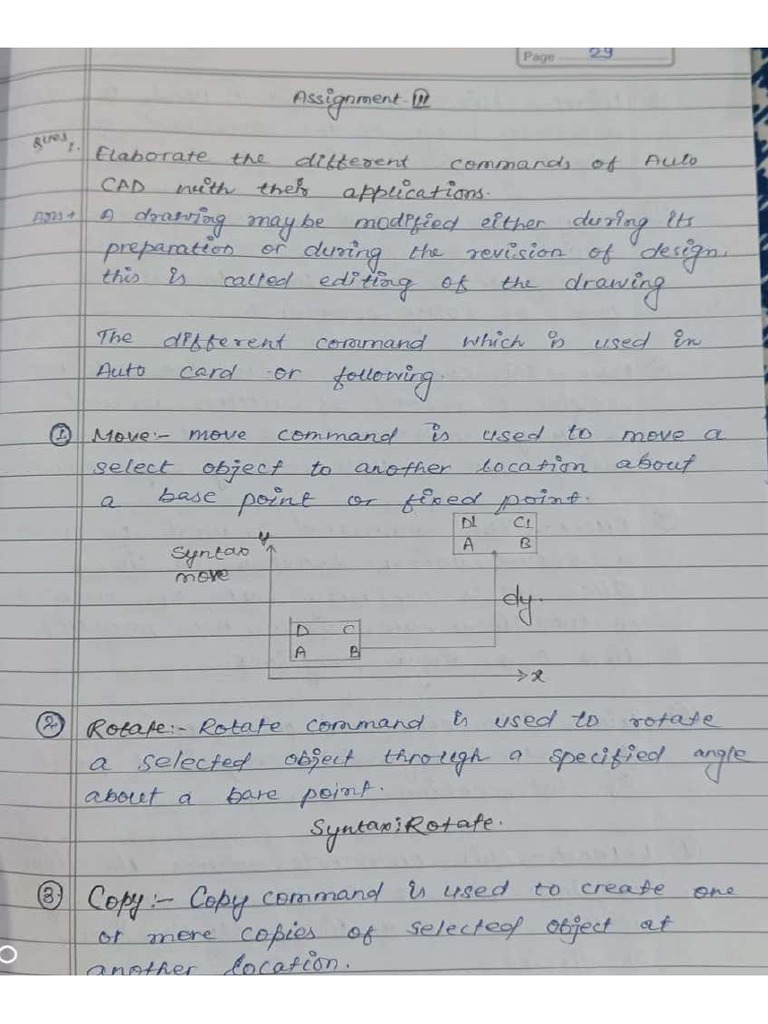 Page 29
Assignment-III
Ques 1. Elaborate the different commands of Auto
CAD with their applications.
Ans→ A drawing may be modified either during its
preparation or during the revision of design,
this is called editing of the drawing
The different command which is used in
Auto card or following.
① Move:- move command is used to move a
select object to another location about
a base point or fixed point.
D1 C1
Syntax y A B
move
dy.
D C
A B
x
② Rotate:- Rotate command is used to rotate
a selected object through a specified angle
about a bare point.
Syntax: Rotate.
③ Copy:- Copy command is used to create one
or more copies of selected object at
another location.